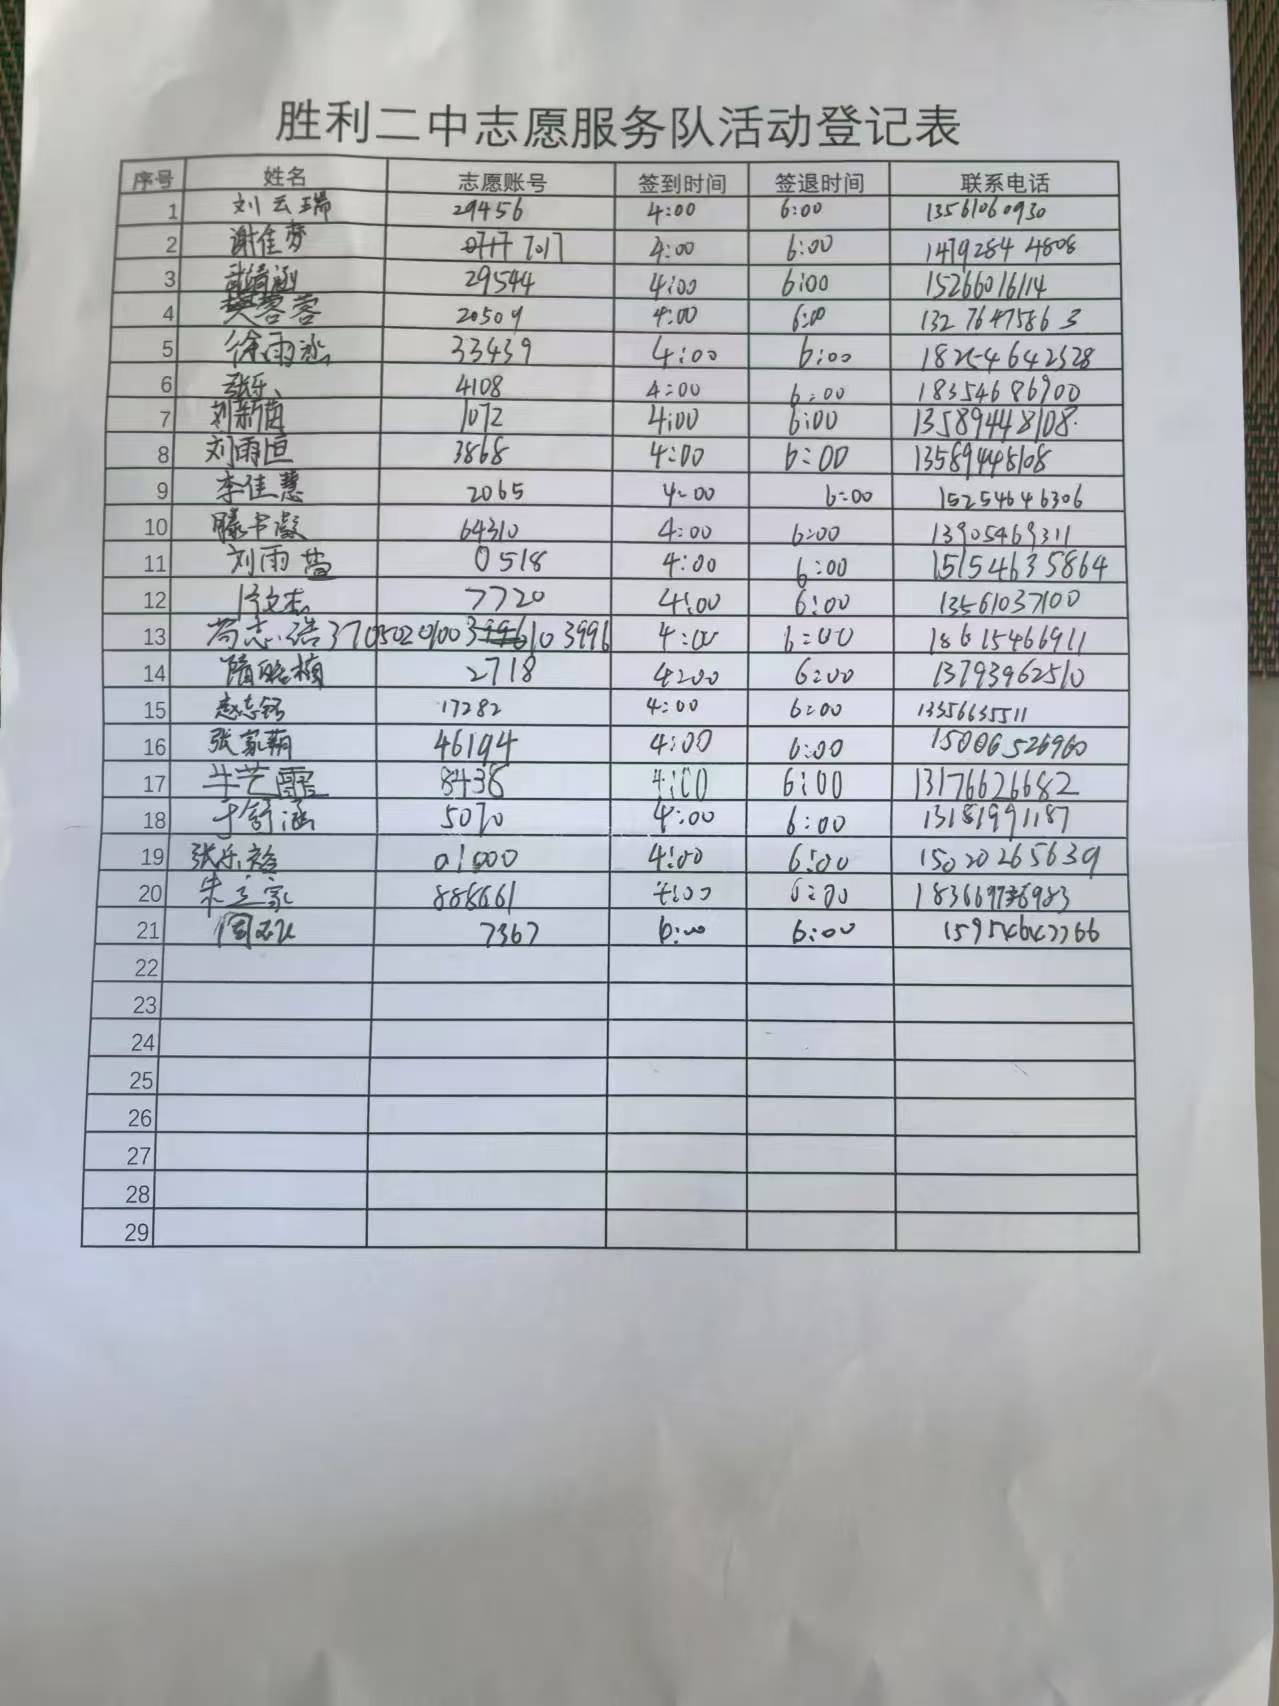 胜利二中志愿服务队活动登记表
序号 姓名 志愿账号 签到时间 签退时间 联系电话
1 刘云瑞 29456 4:00 6:00 13561060930
2 谢佳梦 7017 4:00 6:00 14792844808
3 29544 4:00 6:00 15266016114
4 樊蓉蓉 20509 4:00 6:00 13276475863
5 徐雨冰 33439 4:00 6:00 18254642328
6 张乐 4108 4:00 6:00 18354686900
7 刘新茵 1072 4:00 6:00 13589448108
8 刘雨恒 3868 4:00 6:00 13589448108
9 李佳慧 2065 4:00 6:00 15254646306
10 滕书凝 64310 4:00 6:00 13905469311
11 刘雨萱 0518 4:00 6:00 15154635864
12 7720 4:00 6:00 13561037100
13 尚志浩 4:00 6:00 18615466911
14 隋铭桢 2718 4:00 6:00 13793962510
15 赵志铭 17282 4:00 6:00 13356635511
16 张家萌 46194 4:00 6:00 15006526960
17 牛艺霏 8436 4:00 6:00 13176626682
18 于舒涵 5070 4:00 6:00 13181991187
19 张乐裕 01000 4:00 6:00 15020265639
20 朱立家 888661 4:00 6:00
21 7367 6:00 6:00 15954647766
22
23
24
25
26
27
28
29